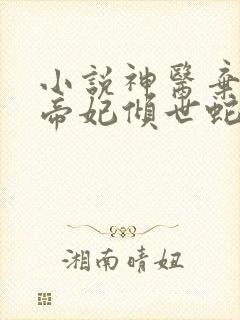 小說神醫棄
帝妃傾世蛇
湘南晴妞